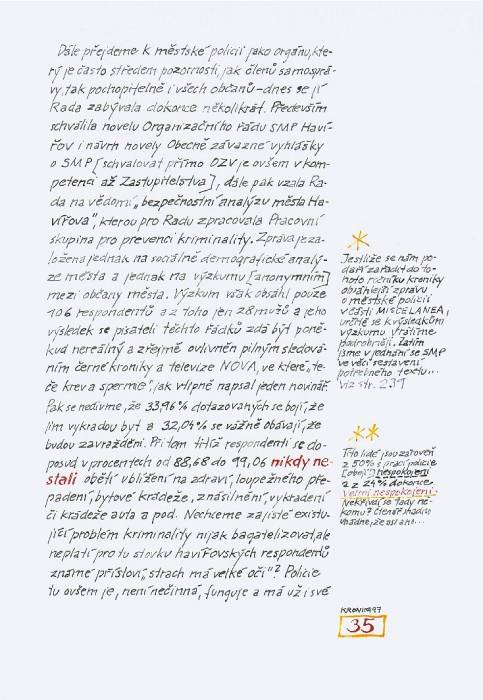 Dále přejdeme k městské policii jako orgánu, kte-
rý je často středem pozornosti, jak členů samosprá-
vy, tak pochopitelně i všech občanů – dnes se jí
Rada zabývala dokonce několikrát. Především
schválila novelu Organizačního řádu SMP Haví-
řov i návrh novely Obecně závazné vyhlášky
o SMP [schvalovat přímo OZV je ovšem v kom-
petenci až Zastupitelstva], dále pak vzala Ra-
da na vědomí „bezpečnostní analýzu města Ha-
vířova", kterou pro Radu zpracovala Pracovní
skupina pro prevenci kriminality. Zpráva je za-
ložena jednak na sociálně demografické analý-
ze města a jednak na výzkumu [anonymním]
mezi občany města. Výzkum však obsáhl pouze
106 respondentů a z toho jen 28 mužů a jeho
výsledek se pisateli těchto řádků zdá být poně-
kud nereálný a zřejmě ovlivněn pilným sledová-
ním černé kroniky a televize NOVA, ve které „te-
če krev a spermie", jak vtipně napsal jeden novinář.
Pak se nedivme, že 33,96% dotazovaných se bojí, že
jim vykradou byt a 32,04% se vážně obávají, že
budou zavražděni. Při tom titíž respondenti se do-
posud v procentech od 88,68 do 99,06 nikdy ne-
stali obětí ublížení na zdraví, loupežného pře-
padení, bytové krádeže, znásilnění, vykradení
či krádeže auta a pod. Nechceme zajisté existu-
jící problém kriminality nijak bagatelizovat, ale
neplatí pro tu stovku havířovských respondentů
známé přísloví „strach má velké oči"? Policie
tu ovšem je, není nečinná, funguje a má už i své
*
Jestliže se nám po-
daří zařadit do to-
hoto ročníku kroniky
obsáhlejší zprávu
o městské policii
v části MISCELANEA,
určitě se k výsledkům
výzkumu vrátíme
podrobněji. Zatím
jsme v jednání se SMP
ve věci sestavení
potřebného textu...
viz str. 239
**
Tito lidé jsou zároveň
z 50% s prací policie
[obojí!] nespokojeni
a z 24% dokonce
velmi nespokojeni.
Nekřivdí se tady ně-
komu? Čtenář snadno
uhádne, že asi ano...
KRONIKA 97
35